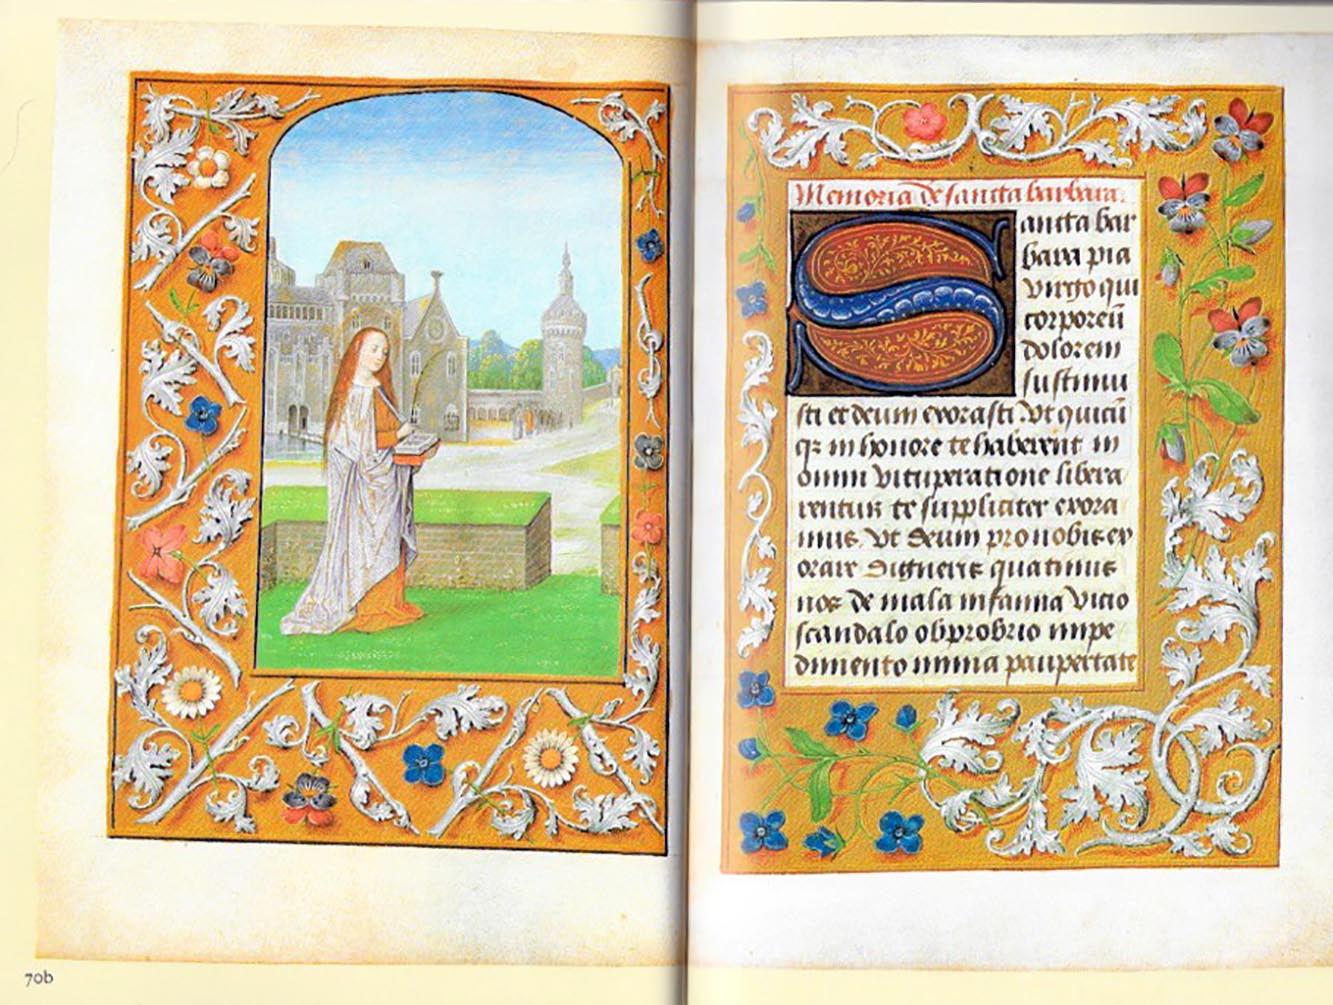 Memoria de sancta barbara.
Sancta bar
bara pia
virgo qui
corporeū
dolorem
sustinui
sti et deum exorasti vt quicū
qz in honore te haberent in
omni vituperatione libera
rentur te suppliciter exora
mus. Vt deum pro nobis ex
orare digneris quatinus
nos de mala infamia vicio
scandalo obprobrio impe
dimento nimia paupertate
70b